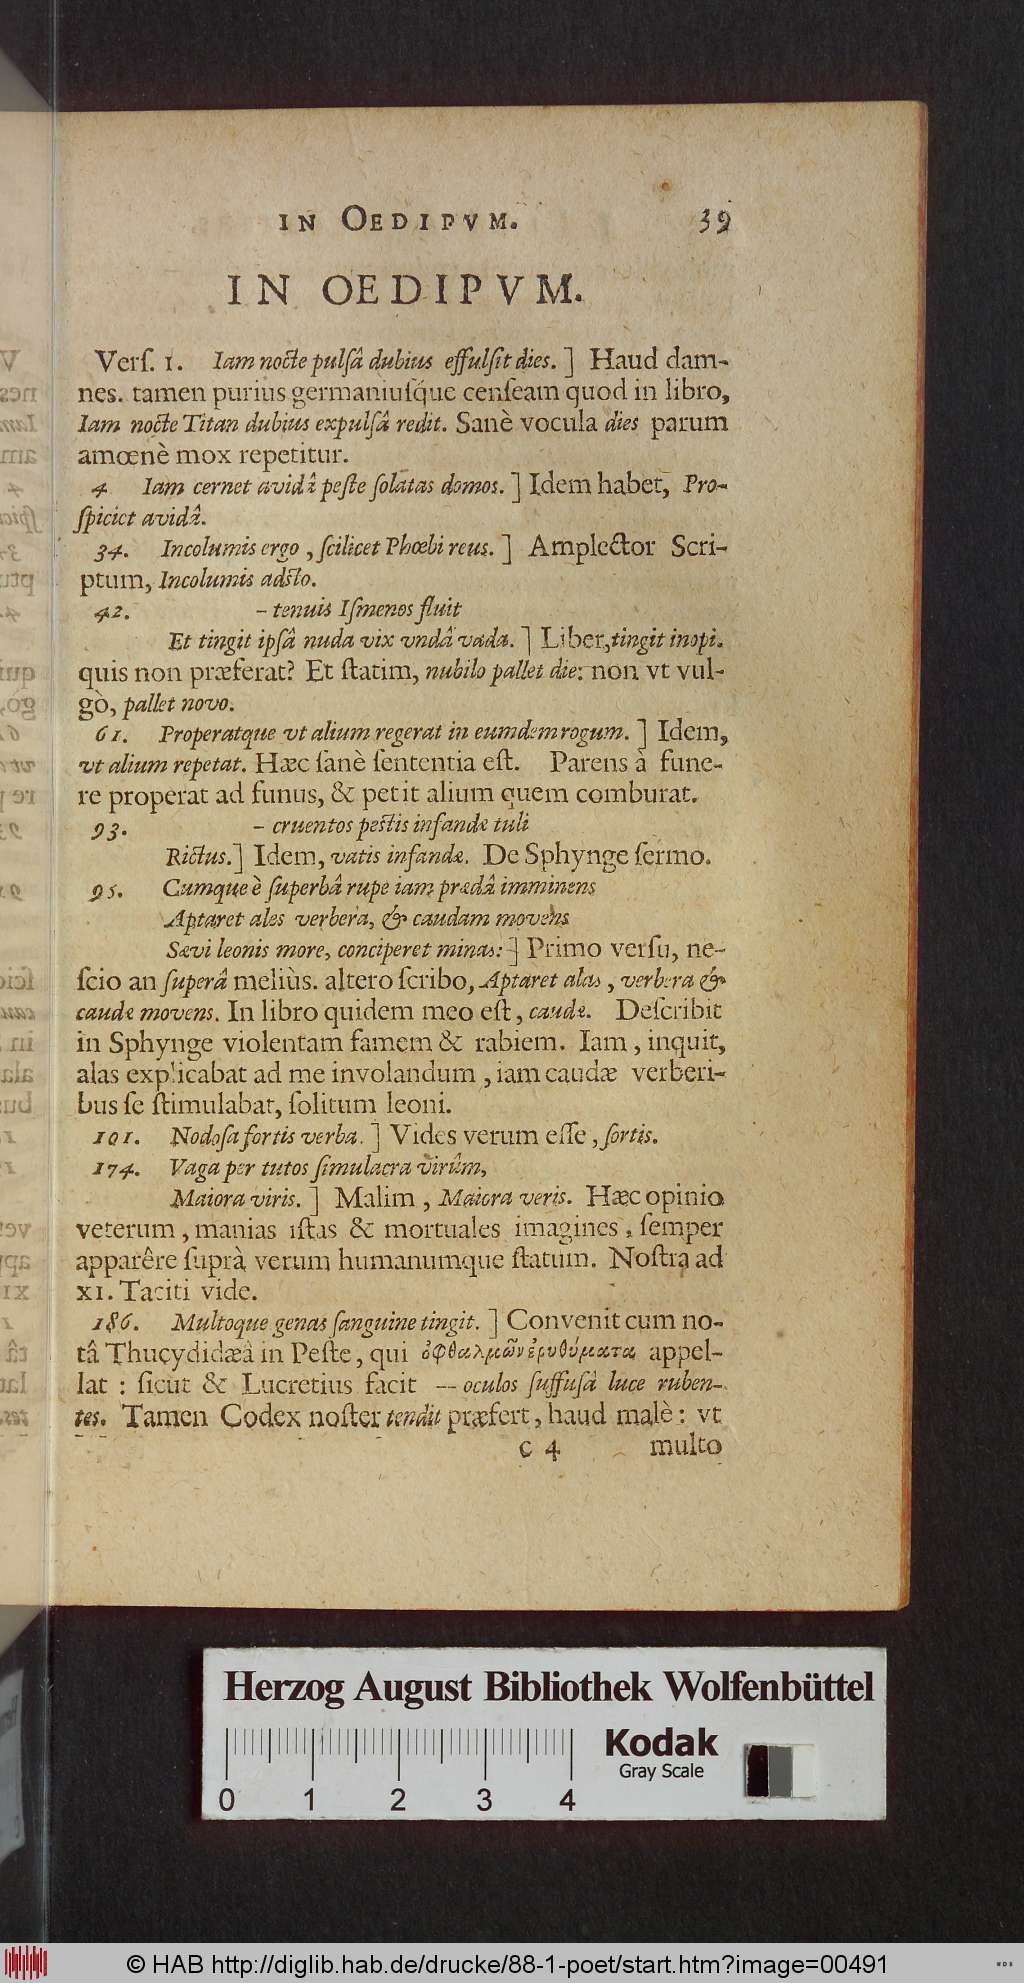 IN OEDIPVM. 39
IN OEDIPVM.
Verſ. 1. Iam nocte pulſâ dubius effulſit dies. ] Haud dam-
nes. tamen purius germaniuſq́ue cenſeam quod in libro,
Iam nocte Titan dubius expulſâ redit. Sanè vocula dies parum
amœnè mox repetitur.
4 Iam cernet avidâ peſte ſolatas domos. ] Idem habet, Pro-
ſpiciet avidâ.
34. Incolumis ergo, ſcilicet Phœbi reus. ] Amplector Scri-
ptum, Incolumis adſto.
42. – tenuis Iſmenos fluit
Et tingit ipſâ nuda vix vndâ vada. ] Liber, tingit inopi.
quis non præferat? Et ſtatim, nubilo pallet die: non vt vul-
gò, pallet novo.
61. Properatque vt alium regerat in eumdem rogum. ] Idem,
vt alium repetat. Hæc ſanè ſententia eſt. Parens à fune-
re properat ad funus, & petit alium quem comburat.
93. – cruentos peſtis infandæ tuli
Rictus. ] Idem, vatis infandæ. De Sphynge ſermo.
95. Cumque è ſuperbâ rupe iam prædâ imminens
Aptaret ales verbera, & caudam movens
Sævi leonis more, conciperet minas: ] Primo verſu, ne-
ſcio an ſuperâ meliùs. altero ſcribo, Aptaret alas, verbera &
caudæ movens. In libro quidem meo eſt, caudæ. Deſcribit
in Sphynge violentam famem & rabiem. Iam, inquit,
alas explicabat ad me involandum, iam caudæ verberi-
bus ſe ſtimulabat, ſolitum leoni.
101. Nodoſa fortis verba. ] Vides verum eſſe, ſortis.
174. Vaga per tutos ſimulacra virûm,
Maiora viris. ] Malim, Maiora veris. Hæc opinio
veterum, manias iſtas & mortuales imagines, ſemper
apparêre ſuprà verum humanumque ſtatum. Noſtra ad
XI. Taciti vide.
186. Multoque genas ſanguine tingit. ] Convenit cum no-
tâ Thucydidæâ in Peſte, qui ὀφθαλμῶν ἐρυθύματα appel-
lat : ſicut & Lucretius facit — oculos ſuffuſâ luce ruben-
tes. Tamen Codex noſter tendit præfert, haud malè: vt
C 4 multo
Herzog August Bibliothek Wolfenbüttel
Kodak
Gray Scale
0 1 2 3 4
© HAB http://diglib.hab.de/drucke/88-1-poet/start.htm?image=00491